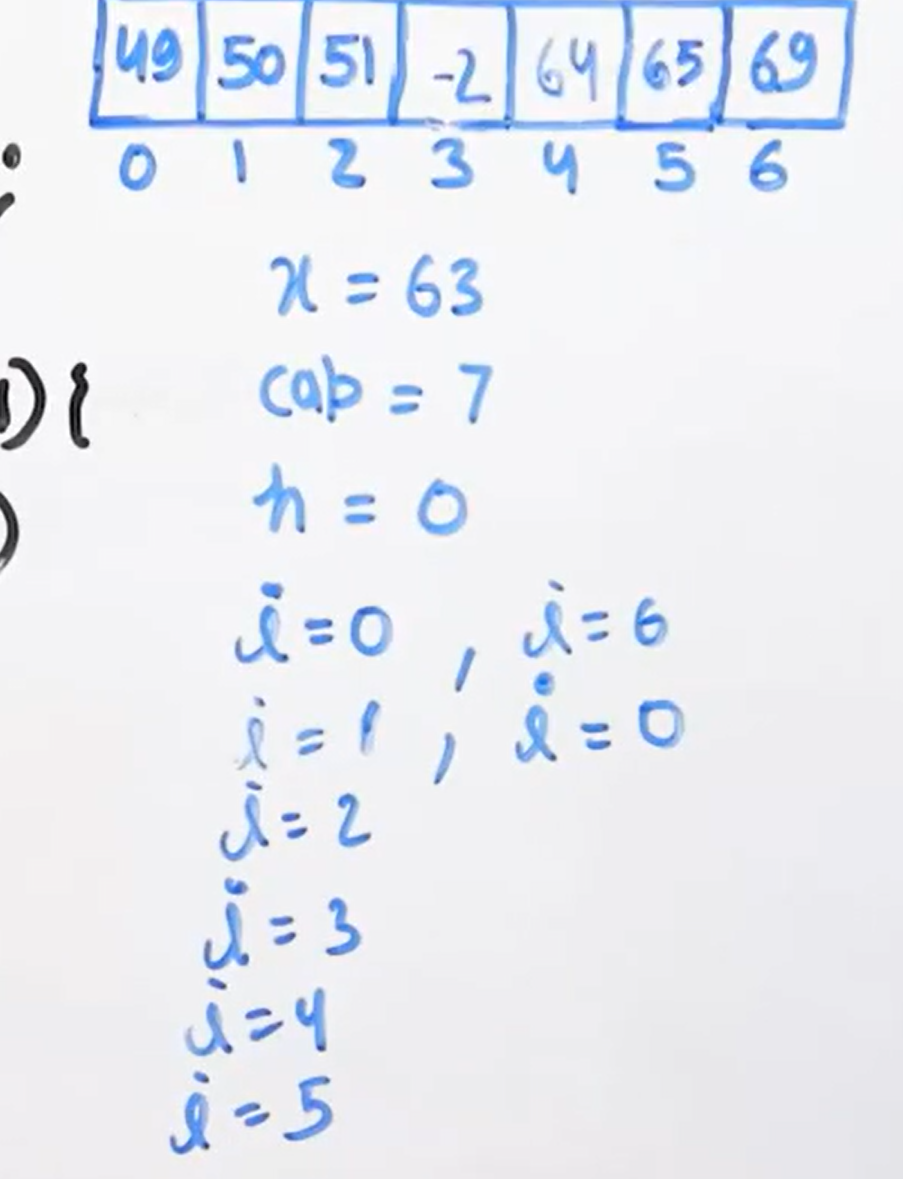 49 50 51 -2 64 65 69
0 1 2 3 4 5 6
;
x = 63
) { cap = 7
h = 0
)
i = 0 , i = 6
i = 1 , i = 0
i = 2
i = 3
i = 4
i = 5